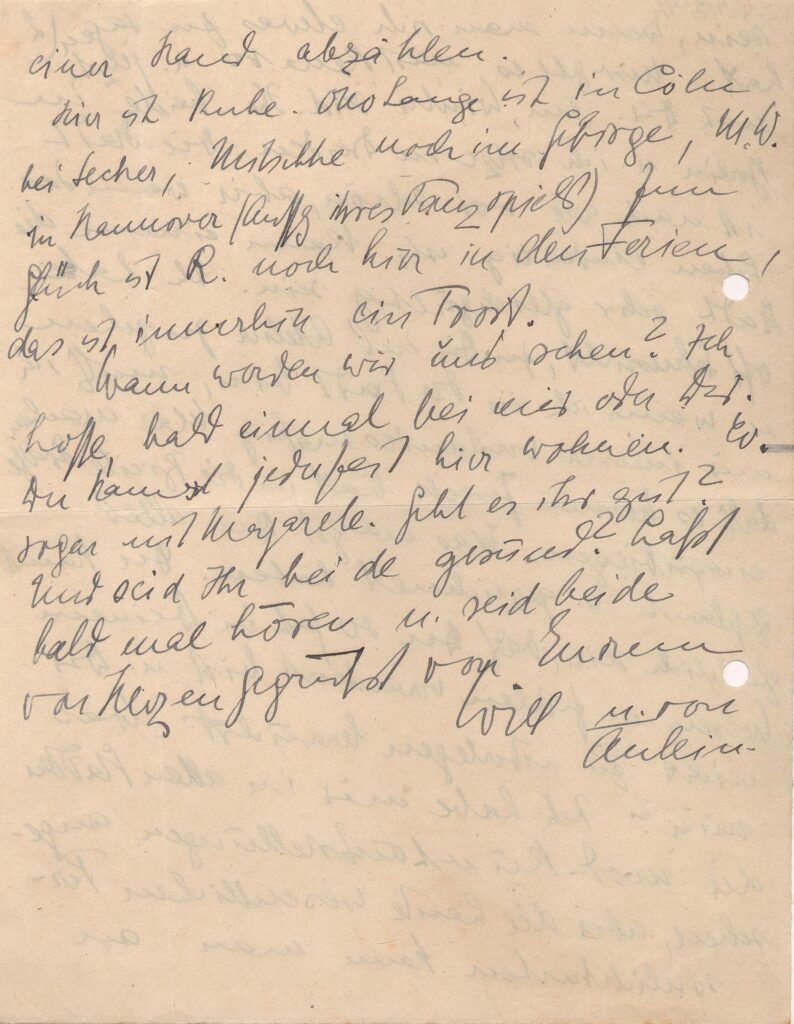 einer Hand abzählen.
Hier ist Ruhe. Otto Lange ist in Cöln
bei Secher, Nitschke noch im Gebirge, M.W.
in Hannover (Auffg ihres Tanzspiels) Zum
Glück ist R. noch hier in den Ferien,
das ist immerhin ein Trost.
Wann werden wir uns sehen? Ich
hoffe, bald einmal bei mir oder Dir.
Du kannst jederzeit hier wohnen. Ev.
sogar mit Margarete. Geht es ihr gut?
Und seid Ihr beide gesund? Laßt
bald mal hören u. seid beide
von Herzen gegrüßt von Eurem
Will u. von